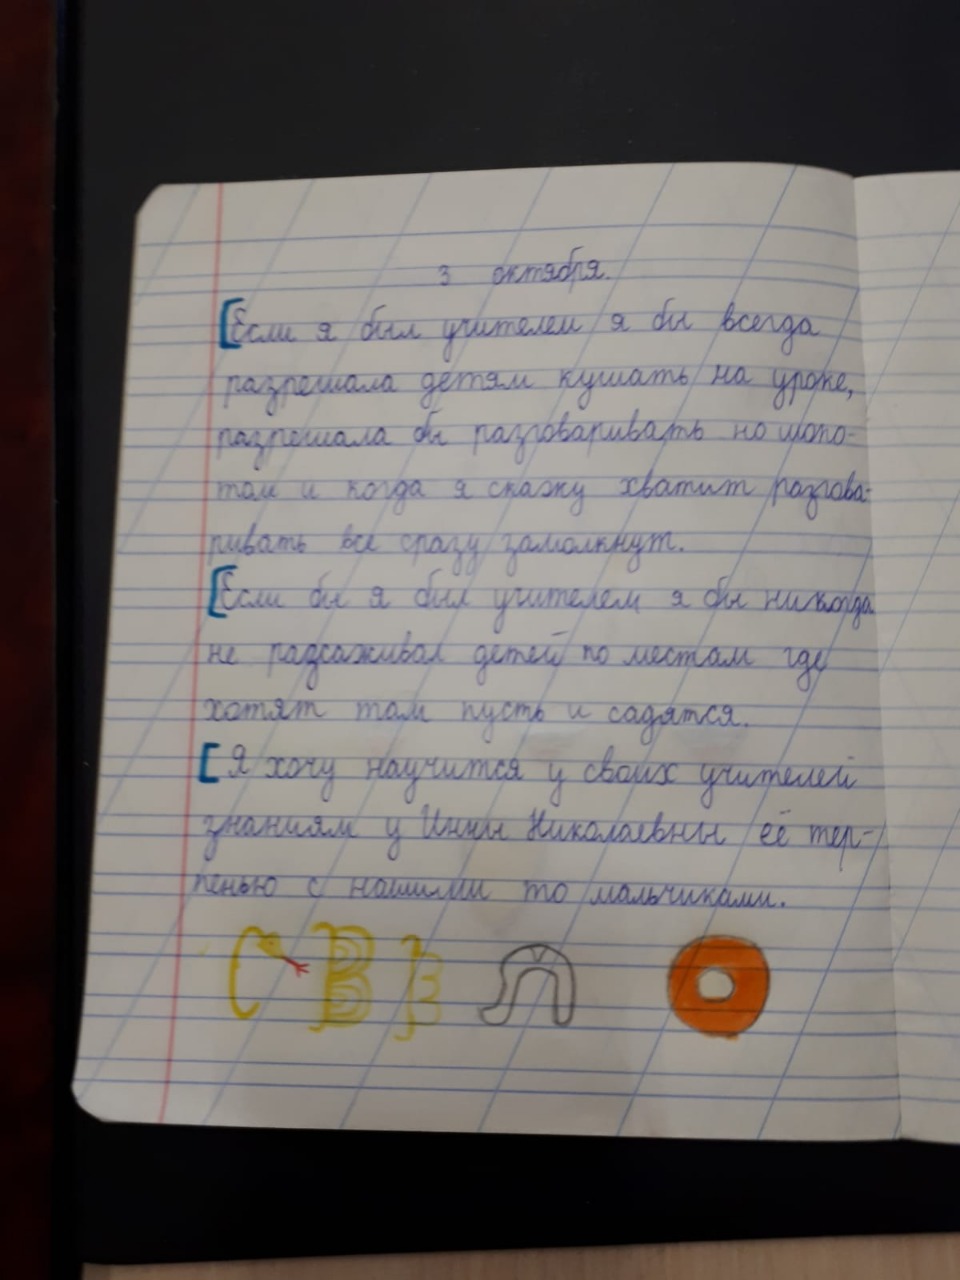 3 октября.
Если я был учителем я бы всегда
разрешала детям кушать на уроке,
разрешала бы разговаривать но шопо-
том и когда я скажу хватит разгова-
ривать все сразу замолкнут.
Если бы я был учителем я бы никогда
не разсаживал детей по местам где
хотят там пусть и садятся.
Я хочу научится у своих учителей
знаниям у Инны Николаевны её тер-
пенью с нашими то мальчиками.